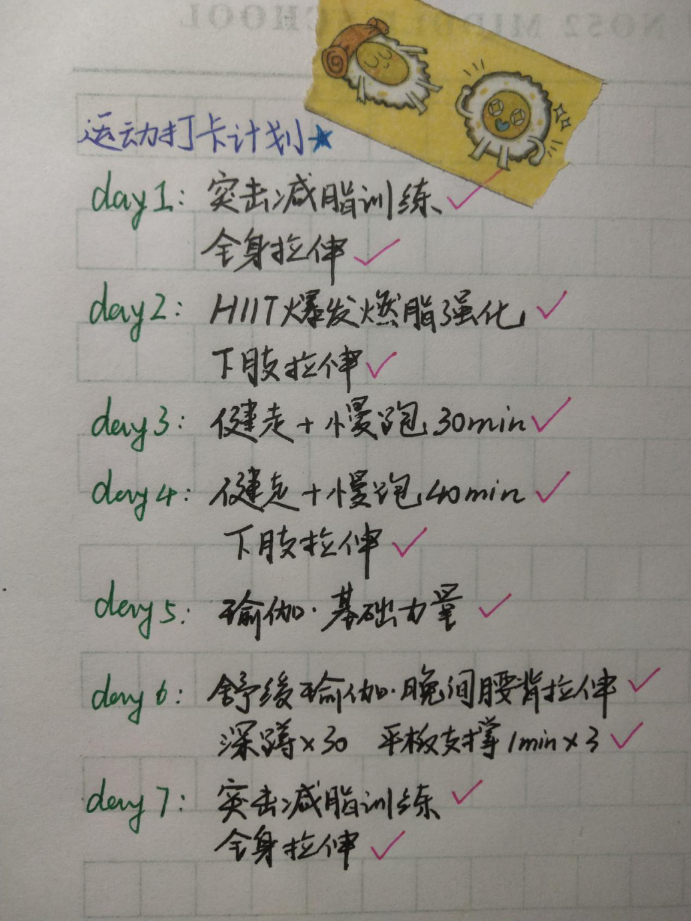 NO52 MIDDLE SCHOOL
运动打卡计划★
day1：突击减脂训练、✓
全身拉伸✓
day2：HIIT爆发燃脂强化✓
下肢拉伸✓
day3：健走+慢跑30min✓
day4：健走+慢跑40min✓
下肢拉伸✓
day5：瑜伽·基础力量✓
day6：舒缓瑜伽·晚间腰背拉伸✓
深蹲×30 平板支撑1min×3✓
day7：突击减脂训练✓
全身拉伸✓